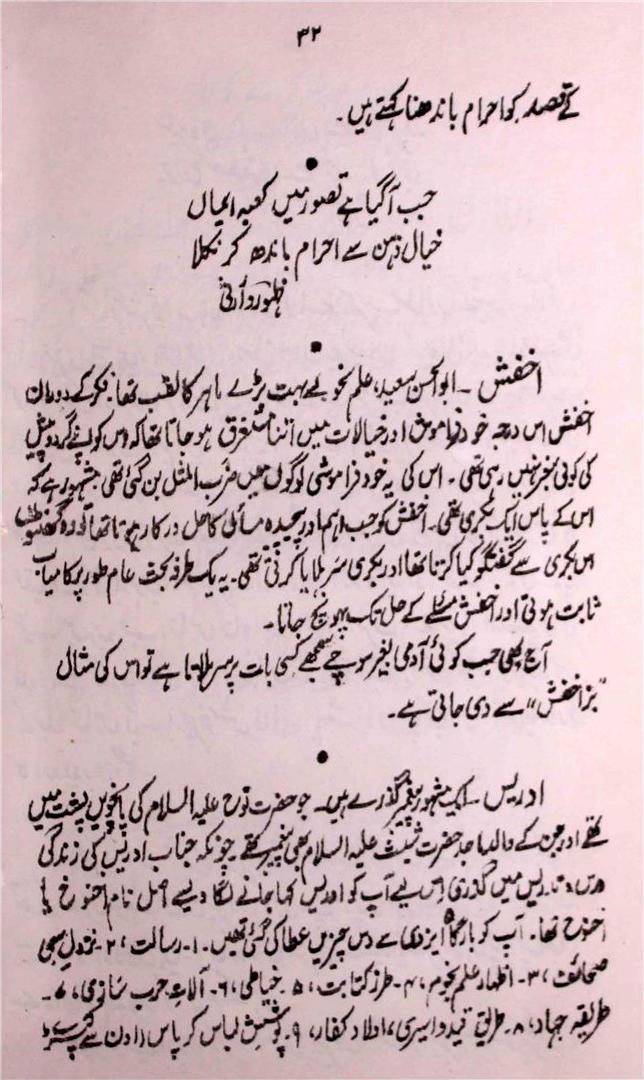 ۳۲
کے قصد کو احرام باندھنا کہتے ہیں۔
جب آ گیا ہے تصور میں کعبہ ایماں
خیال ذہن سے احرام باندھ کر نکلا
ظہور وارثی
اخفش ۔ ابوالحسن سعید، علم نحو کے بہت بڑے ماہر کا لقب تھا، فکر کے دوران
اخفش اس درجہ خود فراموش اور خیالات میں اتنا مستغرق ہو جاتا تھا کہ اس کو اپنے گرد و پیش
کی کوئی خبر نہیں رہتی تھی ۔ اس کی یہ خود فراموشی لوگوں میں ضرب المثل بن گئی تھی، مشہور ہے کہ
اس کے پاس ایک بکری تھی۔ اخفش کو جب اہم اور پیچیدہ مسائل کا حل درکار ہوتا تھا تو وہ گھنٹوں
اس بکری سے گفتگو کیا کرتا تھا اور بکری سر ہلایا کرتی تھی۔ یہ یک طرفہ بحث عام طور پر کامیاب
ثابت ہوتی اور اخفش مسئلے کے حل تک پہونچ جاتا۔
آج بھی جب کوئی آدمی بغیر سوچے سمجھے کسی بات پر سر ہلاتا ہے تو اس کی مثال
"بز اخفش" سے دی جاتی ہے۔
ادریس ۔ ایک مشہور پیغمبر گذرے ہیں۔ جو حضرت نوح علیہ السلام کی پانچویں پشت میں
تھے اور جن کے والد ماجد حضرت شیث علیہ السلام بھی پیغمبر تھے چونکہ جناب ادریس کی زندگی
درس و تدریس میں گذری اس لیے آپ کو ادریس کہا جانے لگا ویسے اصل نام اخنوخ یا
احنوح تھا۔ آپ کو بارگاہ ایزدی سے دس چیزیں عطا کی گئی تھیں۔ ۱۔ رسالت، ۲۔ نزول سبھی
صحائف، ۳۔ اظہار علم نجوم، ۴۔ طرز کتابت، ۵۔ خیاطی، ۶۔ آلات حرب سازی، ۷۔
طریقہ جہاد، ۸۔ طریق قید و اسیری، اولاد کفار، ۹۔ پوشش لباس کرپاس (اون سے کپڑے